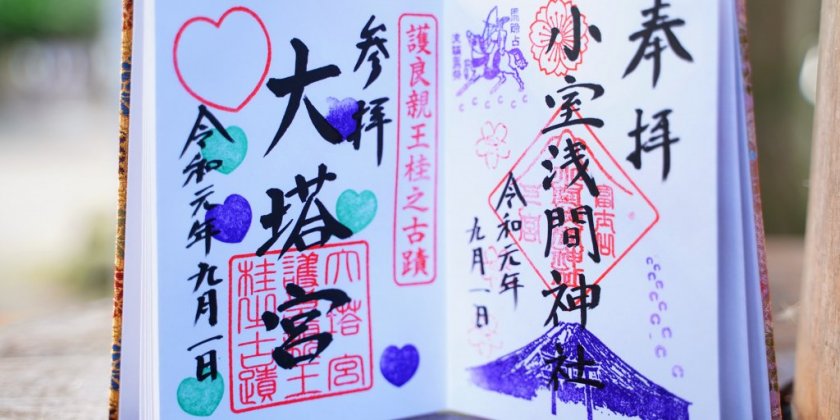 奉拝
小室浅間神社
令和元年
九月一日
富士山
護良親王桂之古蹟
参拝
大塔宮
令和元年九月一日
大塔宮
護良親王
桂之古蹟